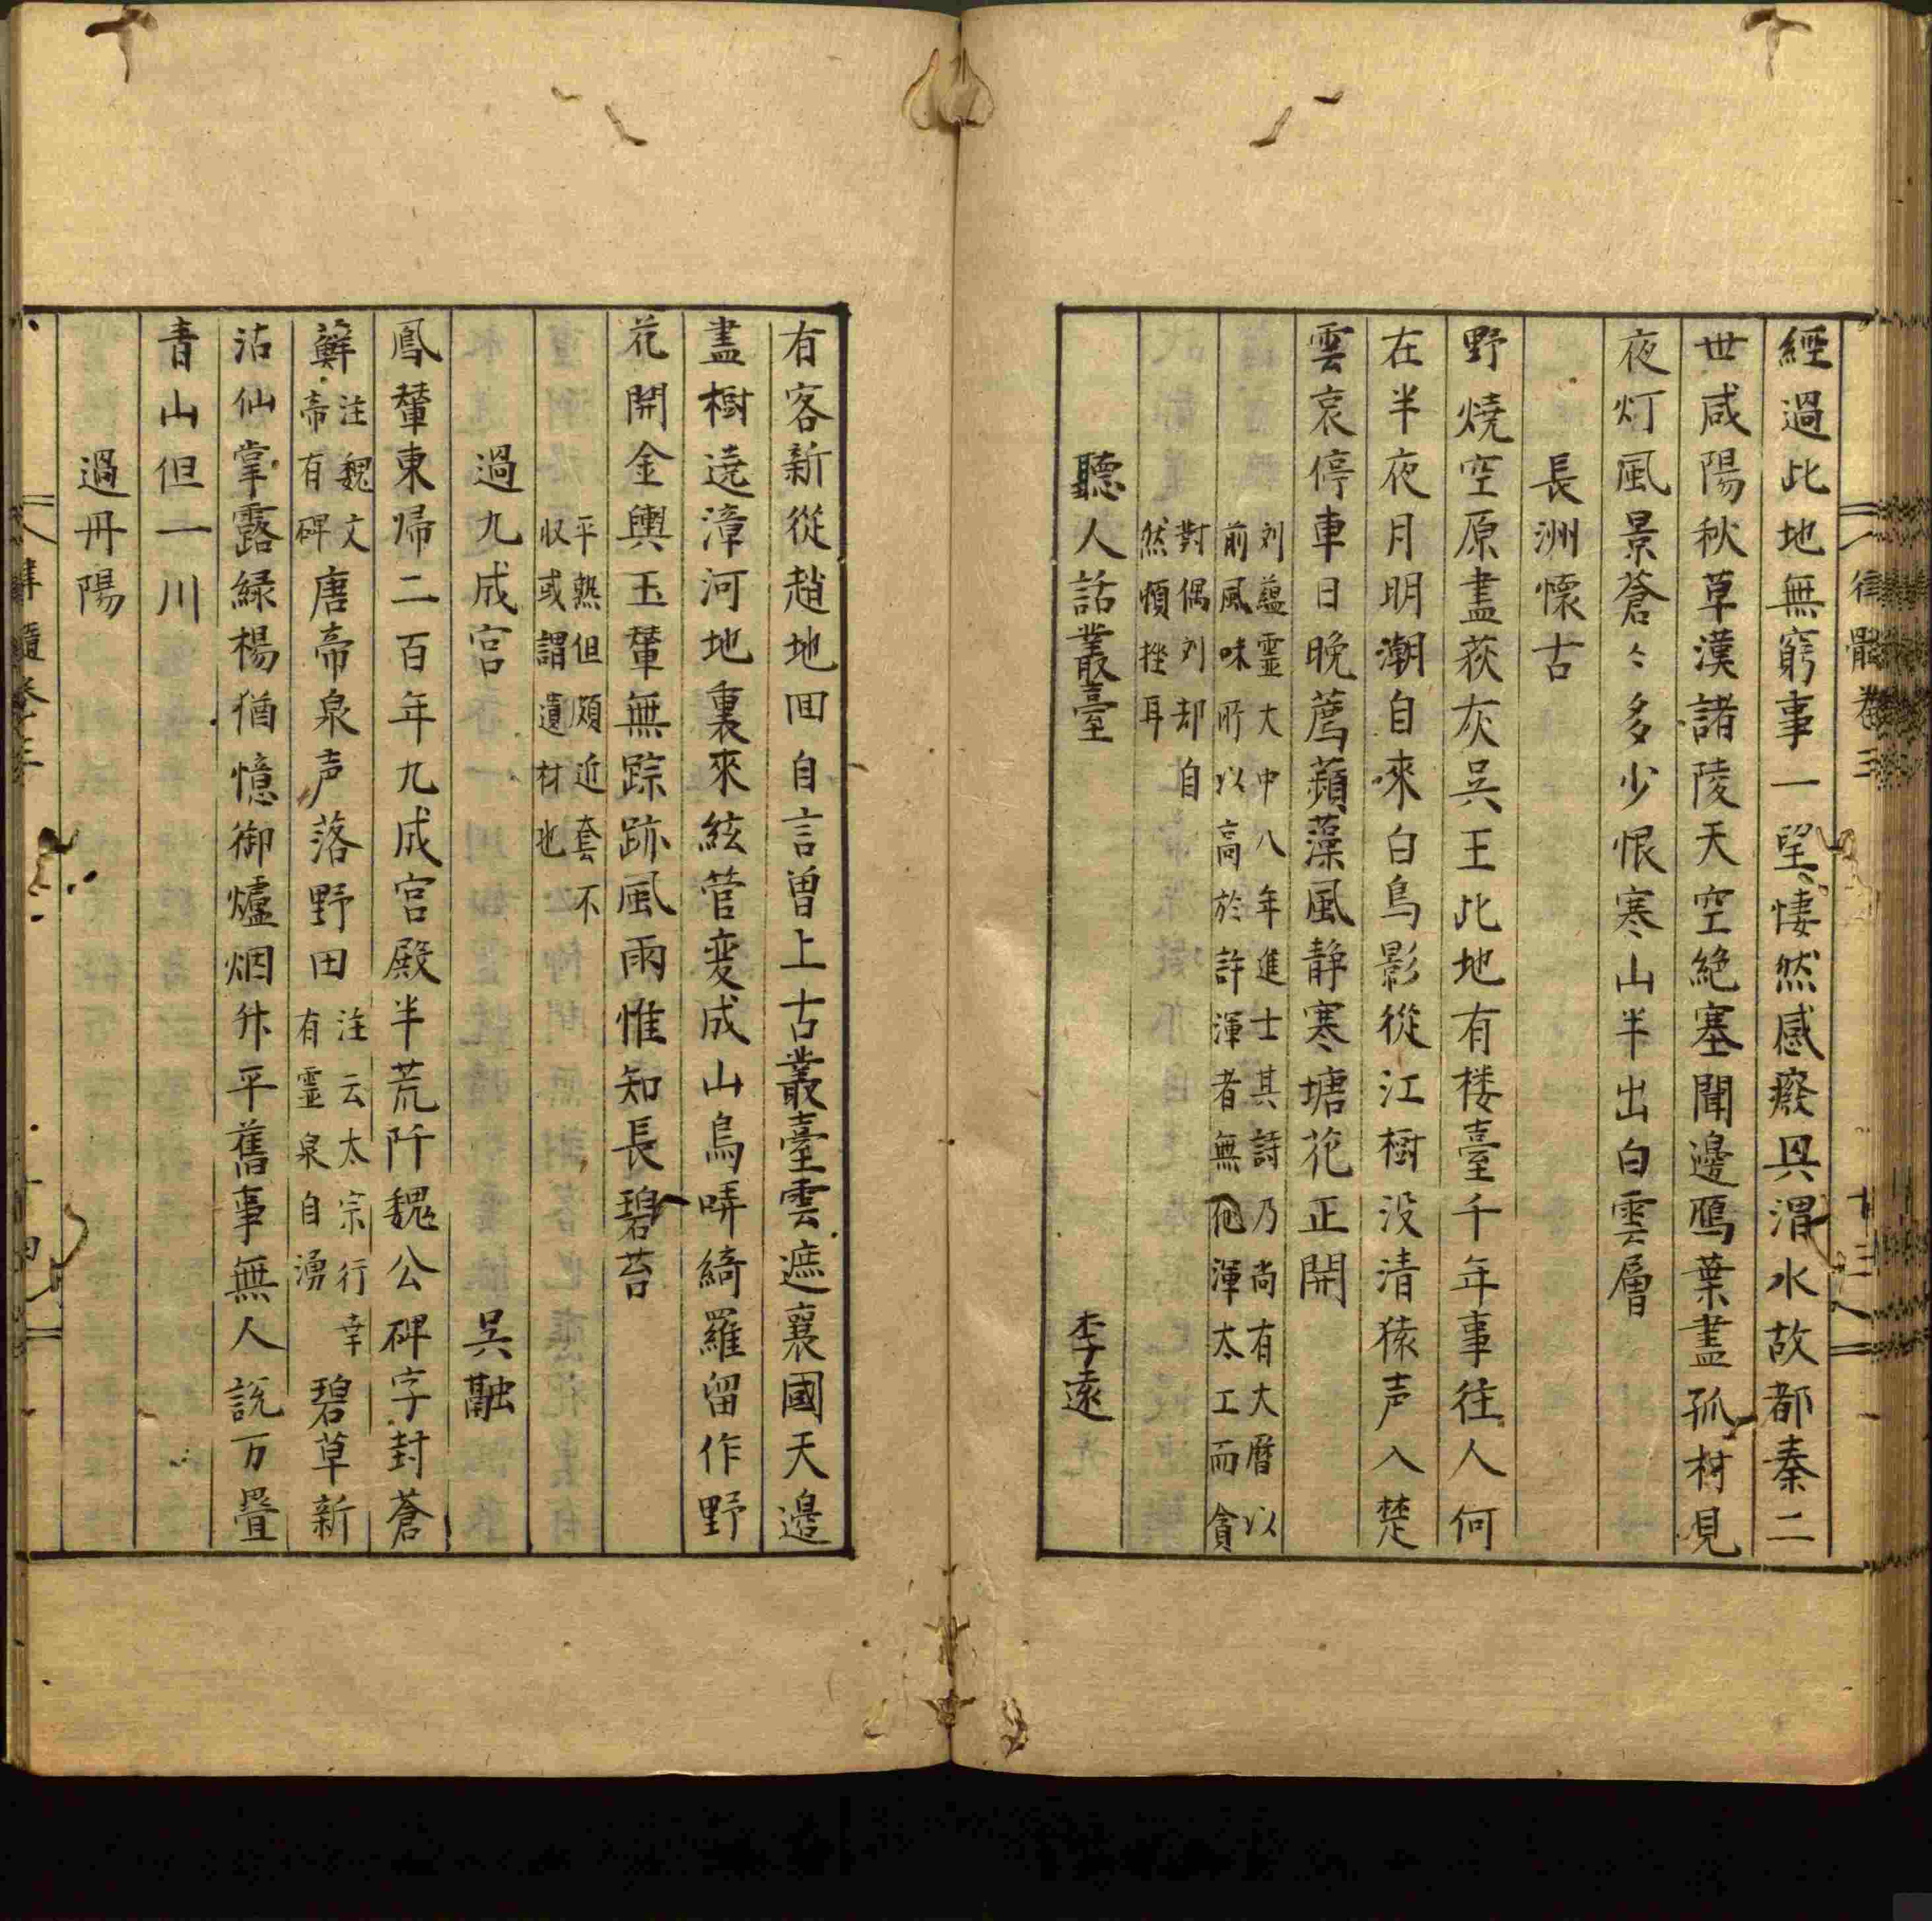 律髓卷三
十三
經過此地無窮事一望悽然感癈具渭水故都秦二
世咸陽秋草漢諸陵天空絶塞聞邊鴈葉盡孤村見
夜灯風景蒼〻多少恨寒山半出白雲層
長洲懷古
野燒空原盡荻灰吴王此地有楼臺千年事往人何
在半夜月明潮自來白鳥影從江樹没清猿声入楚
雲哀停車日晚薦蘋藻風静寒塘花正開
刘蕴霊大中八年進士其詩乃尚有大曆以
前風味所以高於許渾者無他渾太工而貪
對偶刘却自
然頓挫耳
聽人話叢臺 李遠
有客新從趙地回自言曽上古叢臺雲遮襄國天邊
盡樹遶漳河地裏來絃管変成山鳥哢綺羅留作野
花開金輿玉輦無踪跡風雨惟知長碧苔
平熟但頗近套不
収或謂遺材也
過九成宫 吴融
鳳輦東帰二百年九成宫殿半荒阡魏公碑字封蒼
蘚注魏文帝有碑唐帝泉声落野田注云太宗行幸有霊泉自湧碧草新
沾仙掌露緑楊猶憶御爐烟升平舊事無人説万疊
青山但一川
過丹陽